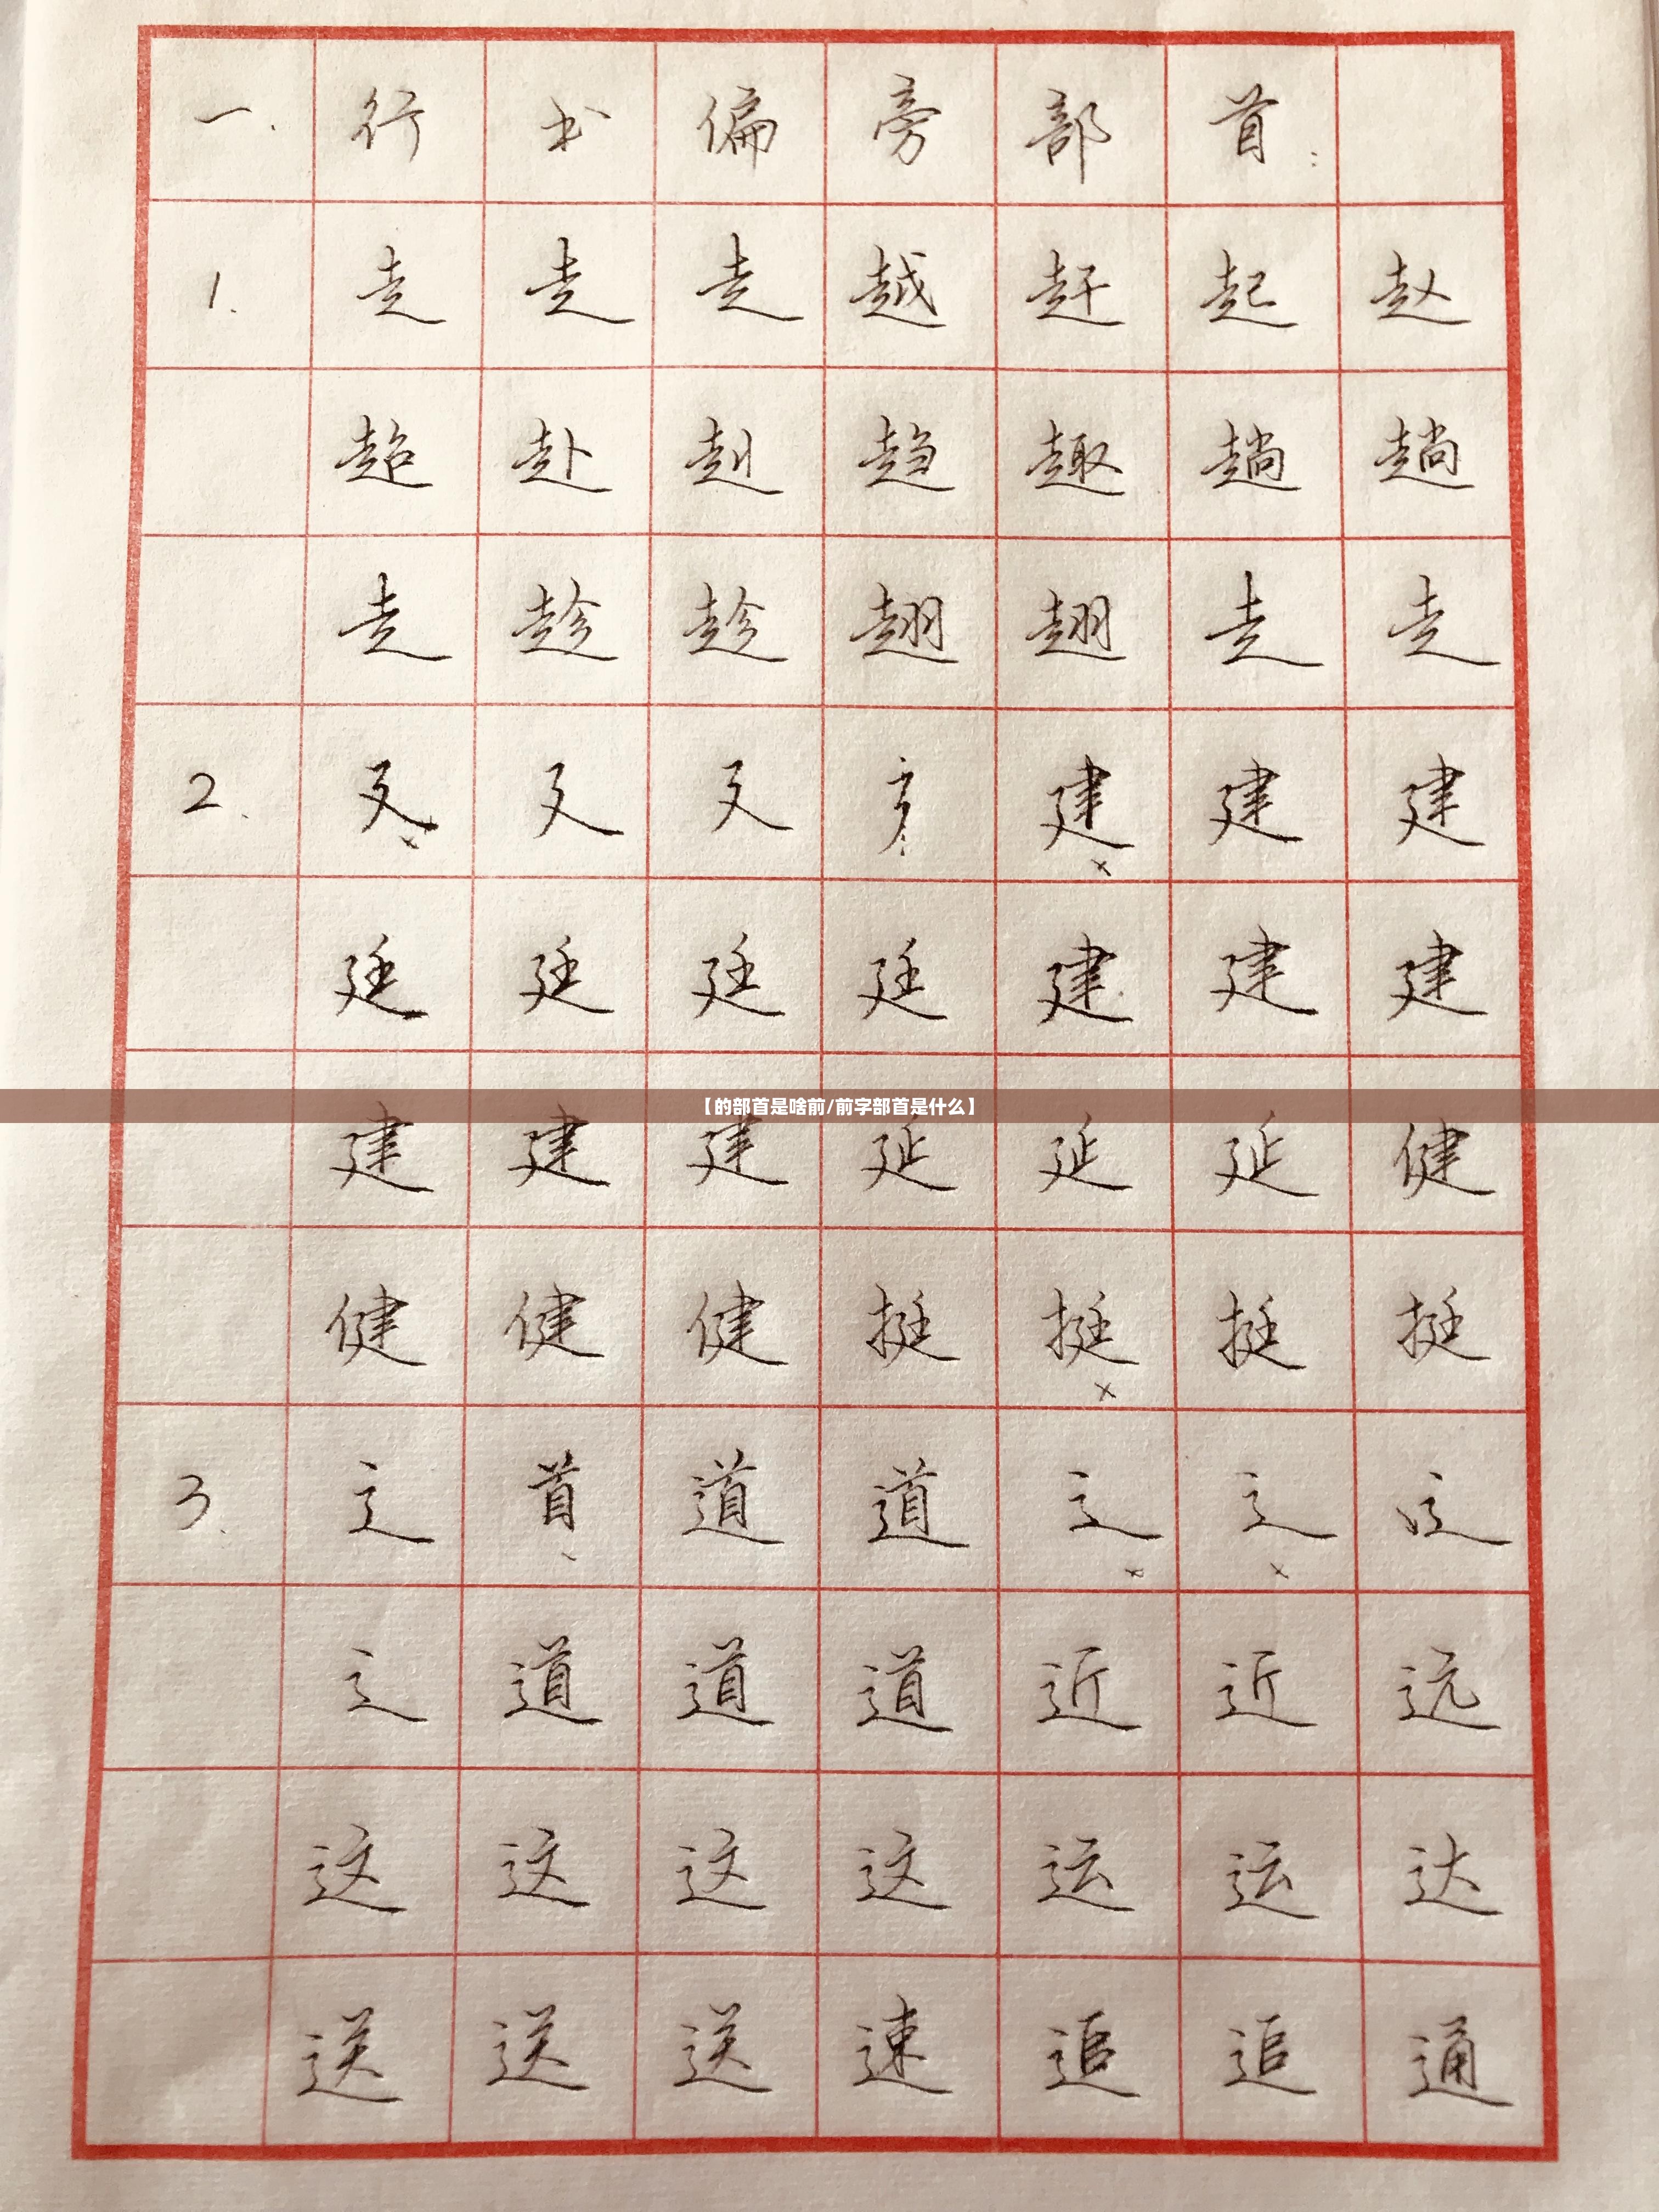 一.行书偏旁部首:
1.走走走越赶起赵
超赴赳趋趣趟趟
走趁趁翘翘走走
2.廴廴廴建建建
廷廷廷廷建建建
【的部首是啥前/前字部首是什么】
建建建延延延健
健健健挺挺挺挺
3.辶首道道辶辶辶
辶道道道近近远
这这这这运运达
送送送速追追通